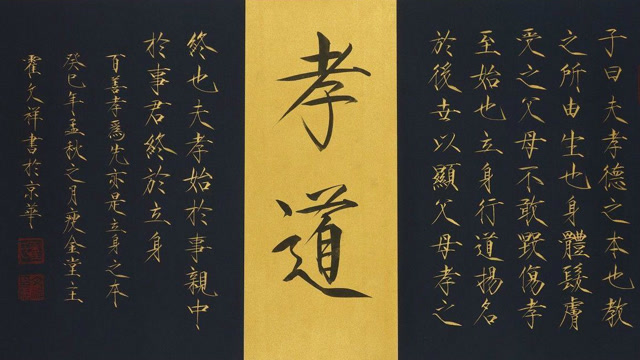 子曰夫孝德之本也教
之所由生也身體髮膚
受之父母不敢毀傷孝
至始也立身行道揚名
於後世以顯父母孝之
孝道
終也夫孝始於事親中
於事君終於立身
百善孝爲先亦是立身之本
癸巳年孟秋之月瘦金堂主
霍文祥書於京華